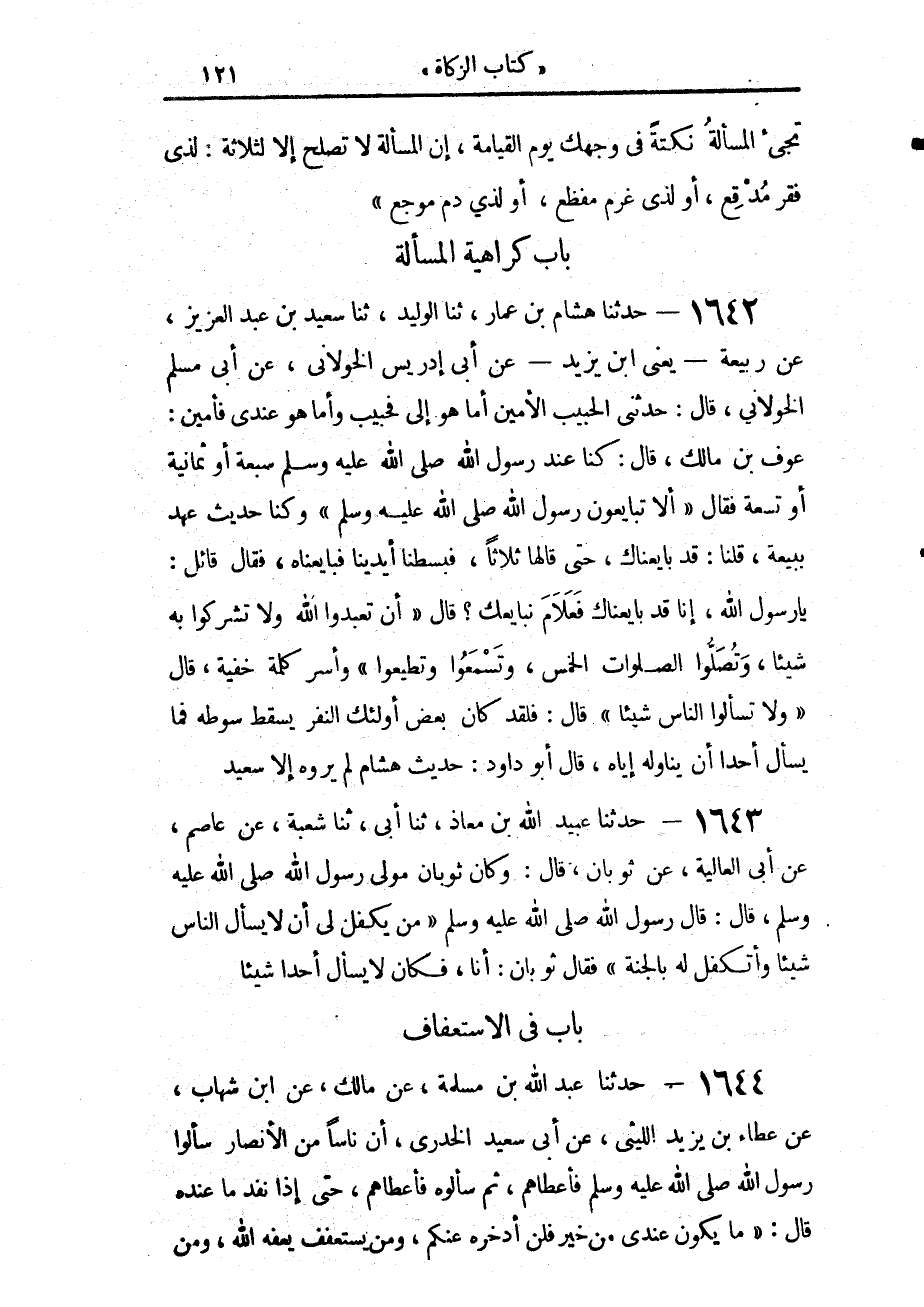 « كتاب الزكاة »
١٢١
تجىء المسألةُ نكتةً فى وجهك يوم القيامة ، إن المسألة لا تصلح إلا لثلاثة : لذى
فقر مُدْقِع ، أو لذى غرم مفظع ، أو لذي دم موجع »
باب كراهية المسألة
١٦٤٢ — حدثنا هشام بن عمار ، ثنا الوليد ، ثنا سعيد بن عبد العزيز ،
عن ربيعة — يعنى ابن يزيد — عن أبى إدريس الخولانى ، عن أبى مسلم
الخولاني ، قال : حدثنى الحبيب الأمين أما هو إلى فحبيب وأما هو عندى فأمين :
عوف بن مالك ، قال : كنا عند رسول الله صلى الله عليه وسلم سبعة أو ثمانية
أو تسعة فقال « ألا تبايعون رسول الله صلى الله عليه وسلم » وكنا حديث عهد
ببيعة ، قلنا : قد بايعناك ، حتى قالها ثلاثاً ، فبسطنا أيدينا فبايعناه ، فقال قائل :
يارسول الله ، إنا قد بايعناك فَعَلَامَ نبايعك ؟ قال « أن تعبدوا الله ولا تشركوا به
شيئا ، وَتُصَلُّوا الصلوات الخمس ، وتَسْمَعُوا وتطيعوا » وأسر كلمة خفية ، قال
« ولا تسألوا الناس شيئا » قال : فلقد كان بعض أولئك النفر يسقط سوطه فما
يسأل أحدا أن يناوله إياه ، قال أبو داود : حديث هشام لم يروه إلا سعيد
١٦٤٣ — حدثنا عبيد الله بن معاذ ، ثنا أبى ، ثنا شعبة ، عن عاصم ،
عن أبى العالية ، عن ثوبان ، قال : وكان ثوبان مولى رسول الله صلى الله عليه
وسلم ، قال : قال رسول الله صلى الله عليه وسلم « من يكفل لى أن لايسأل الناس
شيئا وأتكفل له بالجنة » فقال ثوبان : أنا ، فكان لايسأل أحدا شيئا
باب فى الاستعفاف
١٦٤٤ — حدثنا عبد الله بن مسلمة ، عن مالك ، عن ابن شهاب ،
عن عطاء بن يزيد الليثى ، عن أبى سعيد الخدرى ، أن ناساً من الأنصار سألوا
رسول الله صلى الله عليه وسلم فأعطاهم ، ثم سألوه فأعطاهم ، حتى إذا نفد ما عنده
قال : « ما يكون عندى من خير فلن أدخره عنكم ، ومن يستعفف يعفه الله ، ومن